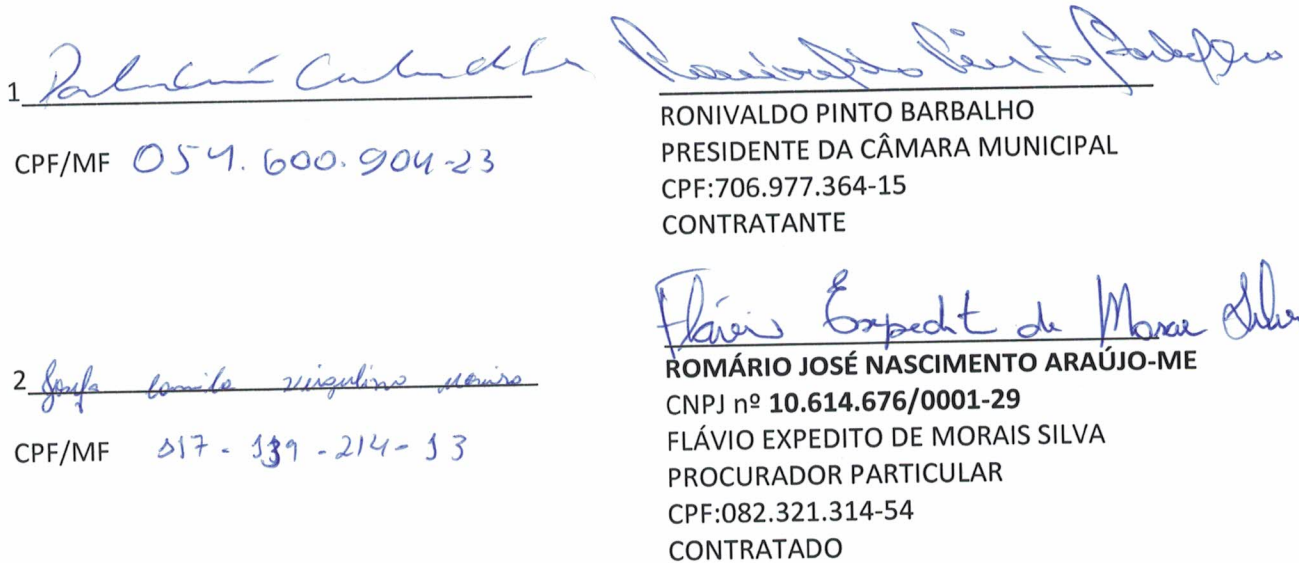 1
CPF/MF 054.600.904-23
2 Josefa Camila Virgulino
CPF/MF 117-139-214-13
Ronivaldo Pinto Barbalho
RONIVALDO PINTO BARBALHO
PRESIDENTE DA CÂMARA MUNICIPAL
CPF:706.977.364-15
CONTRATANTE
Flávio Expedit de Morais Silva
ROMÁRIO JOSÉ NASCIMENTO ARAÚJO-ME
CNPJ nº 10.614.676/0001-29
FLÁVIO EXPEDITO DE MORAIS SILVA
PROCURADOR PARTICULAR
CPF:082.321.314-54
CONTRATADO